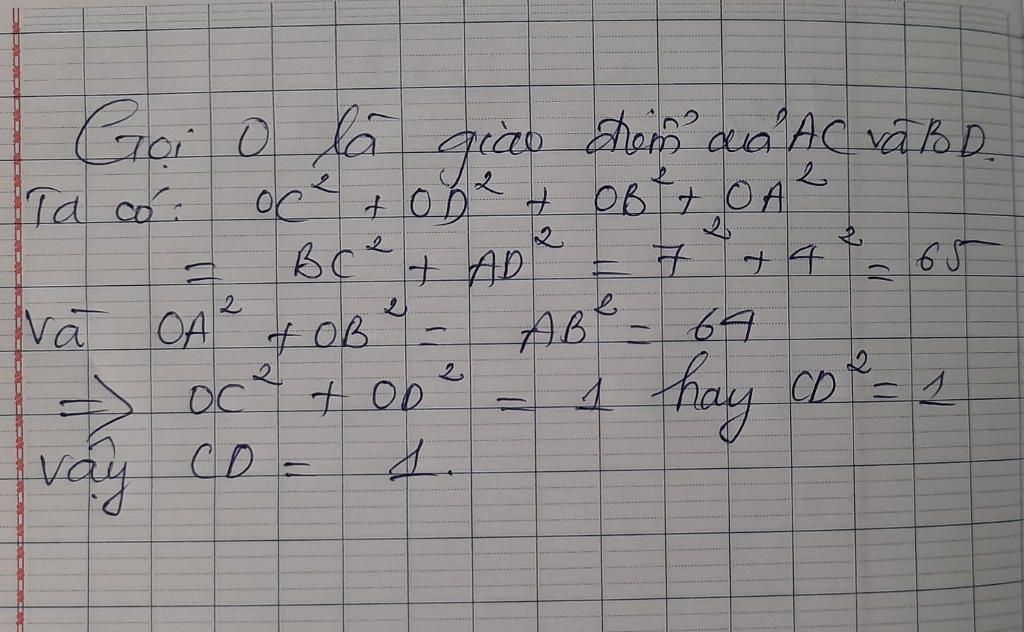 Gọi O là giao điểm của AC và BD.
Ta có: OC² + OD² + OB² + OA²
= BC² + AD² = 7² + 4² = 65
Và OA² + OB² = AB² = 64
=> OC² + OD² = 1 hay CD² = 1
vậy CD = 1.